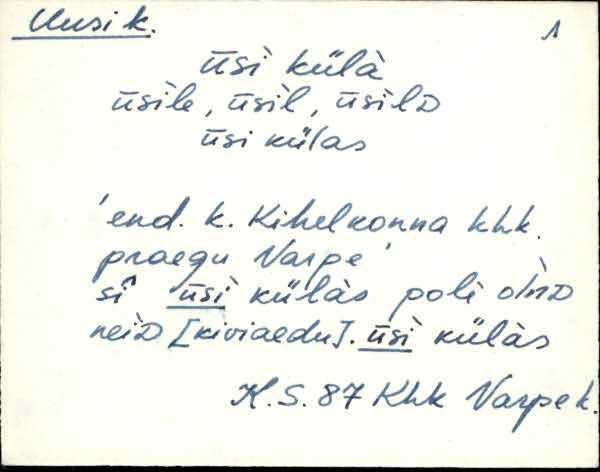 Uusi k. 1
ūsì külà
ūsìle, ūsìl, ūsìlᴅ
ūsi külas
'end. k. Kihelkonna khk.
praegu Varpe'
sî ūsì külàs polè olnᴅ
neiᴅ [kiviaedu]. ūsì külàs
K.S. 87 Khk Varpe k.